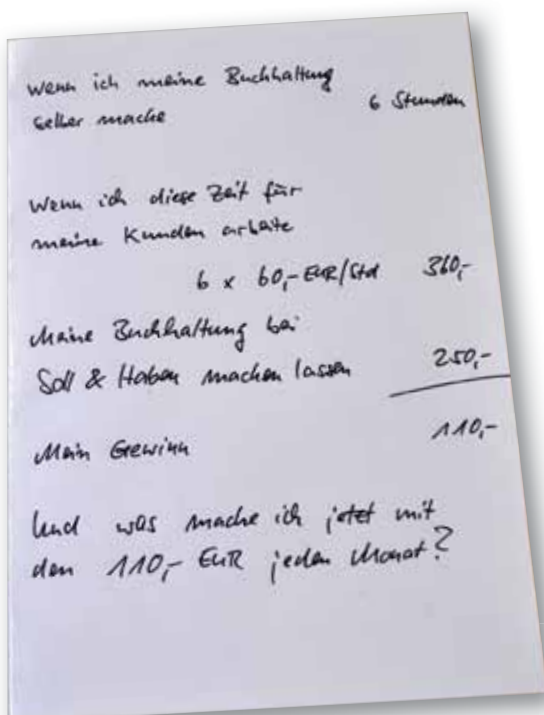 Wenn ich meine Buchhaltung
selber mache 6 Stunden
Wenn ich diese Zeit für
meine Kunden arbeite
6 x 60,- EUR/Std 360,-
Meine Buchhaltung bei
Soll & Haben machen lassen 250,-
Mein Gewinn 110,-
Und was mache ich jetzt mit
den 110,- EUR jeden Monat?